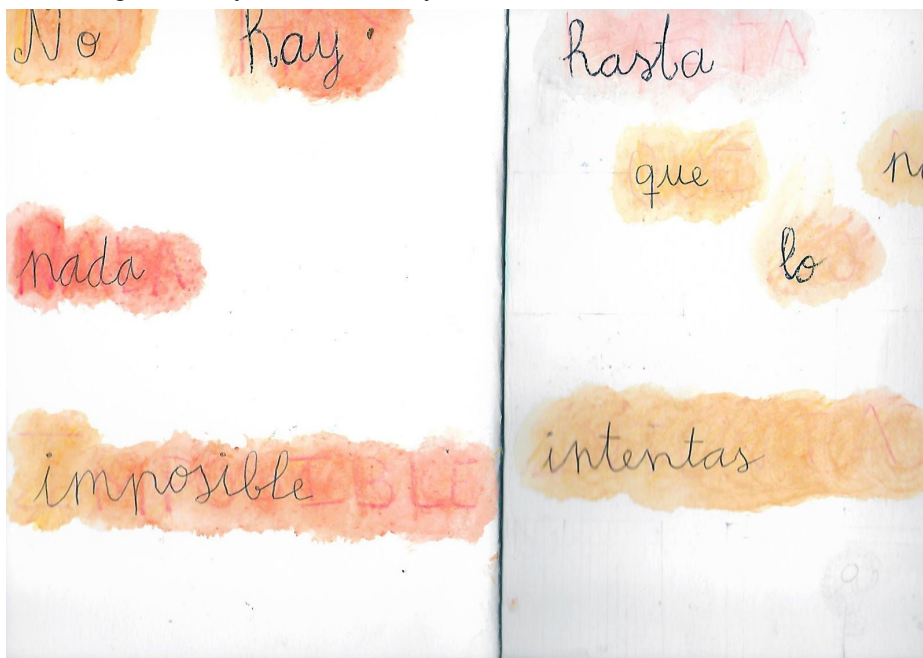 No hay
nada
imposible
hasta
que
lo
intentas